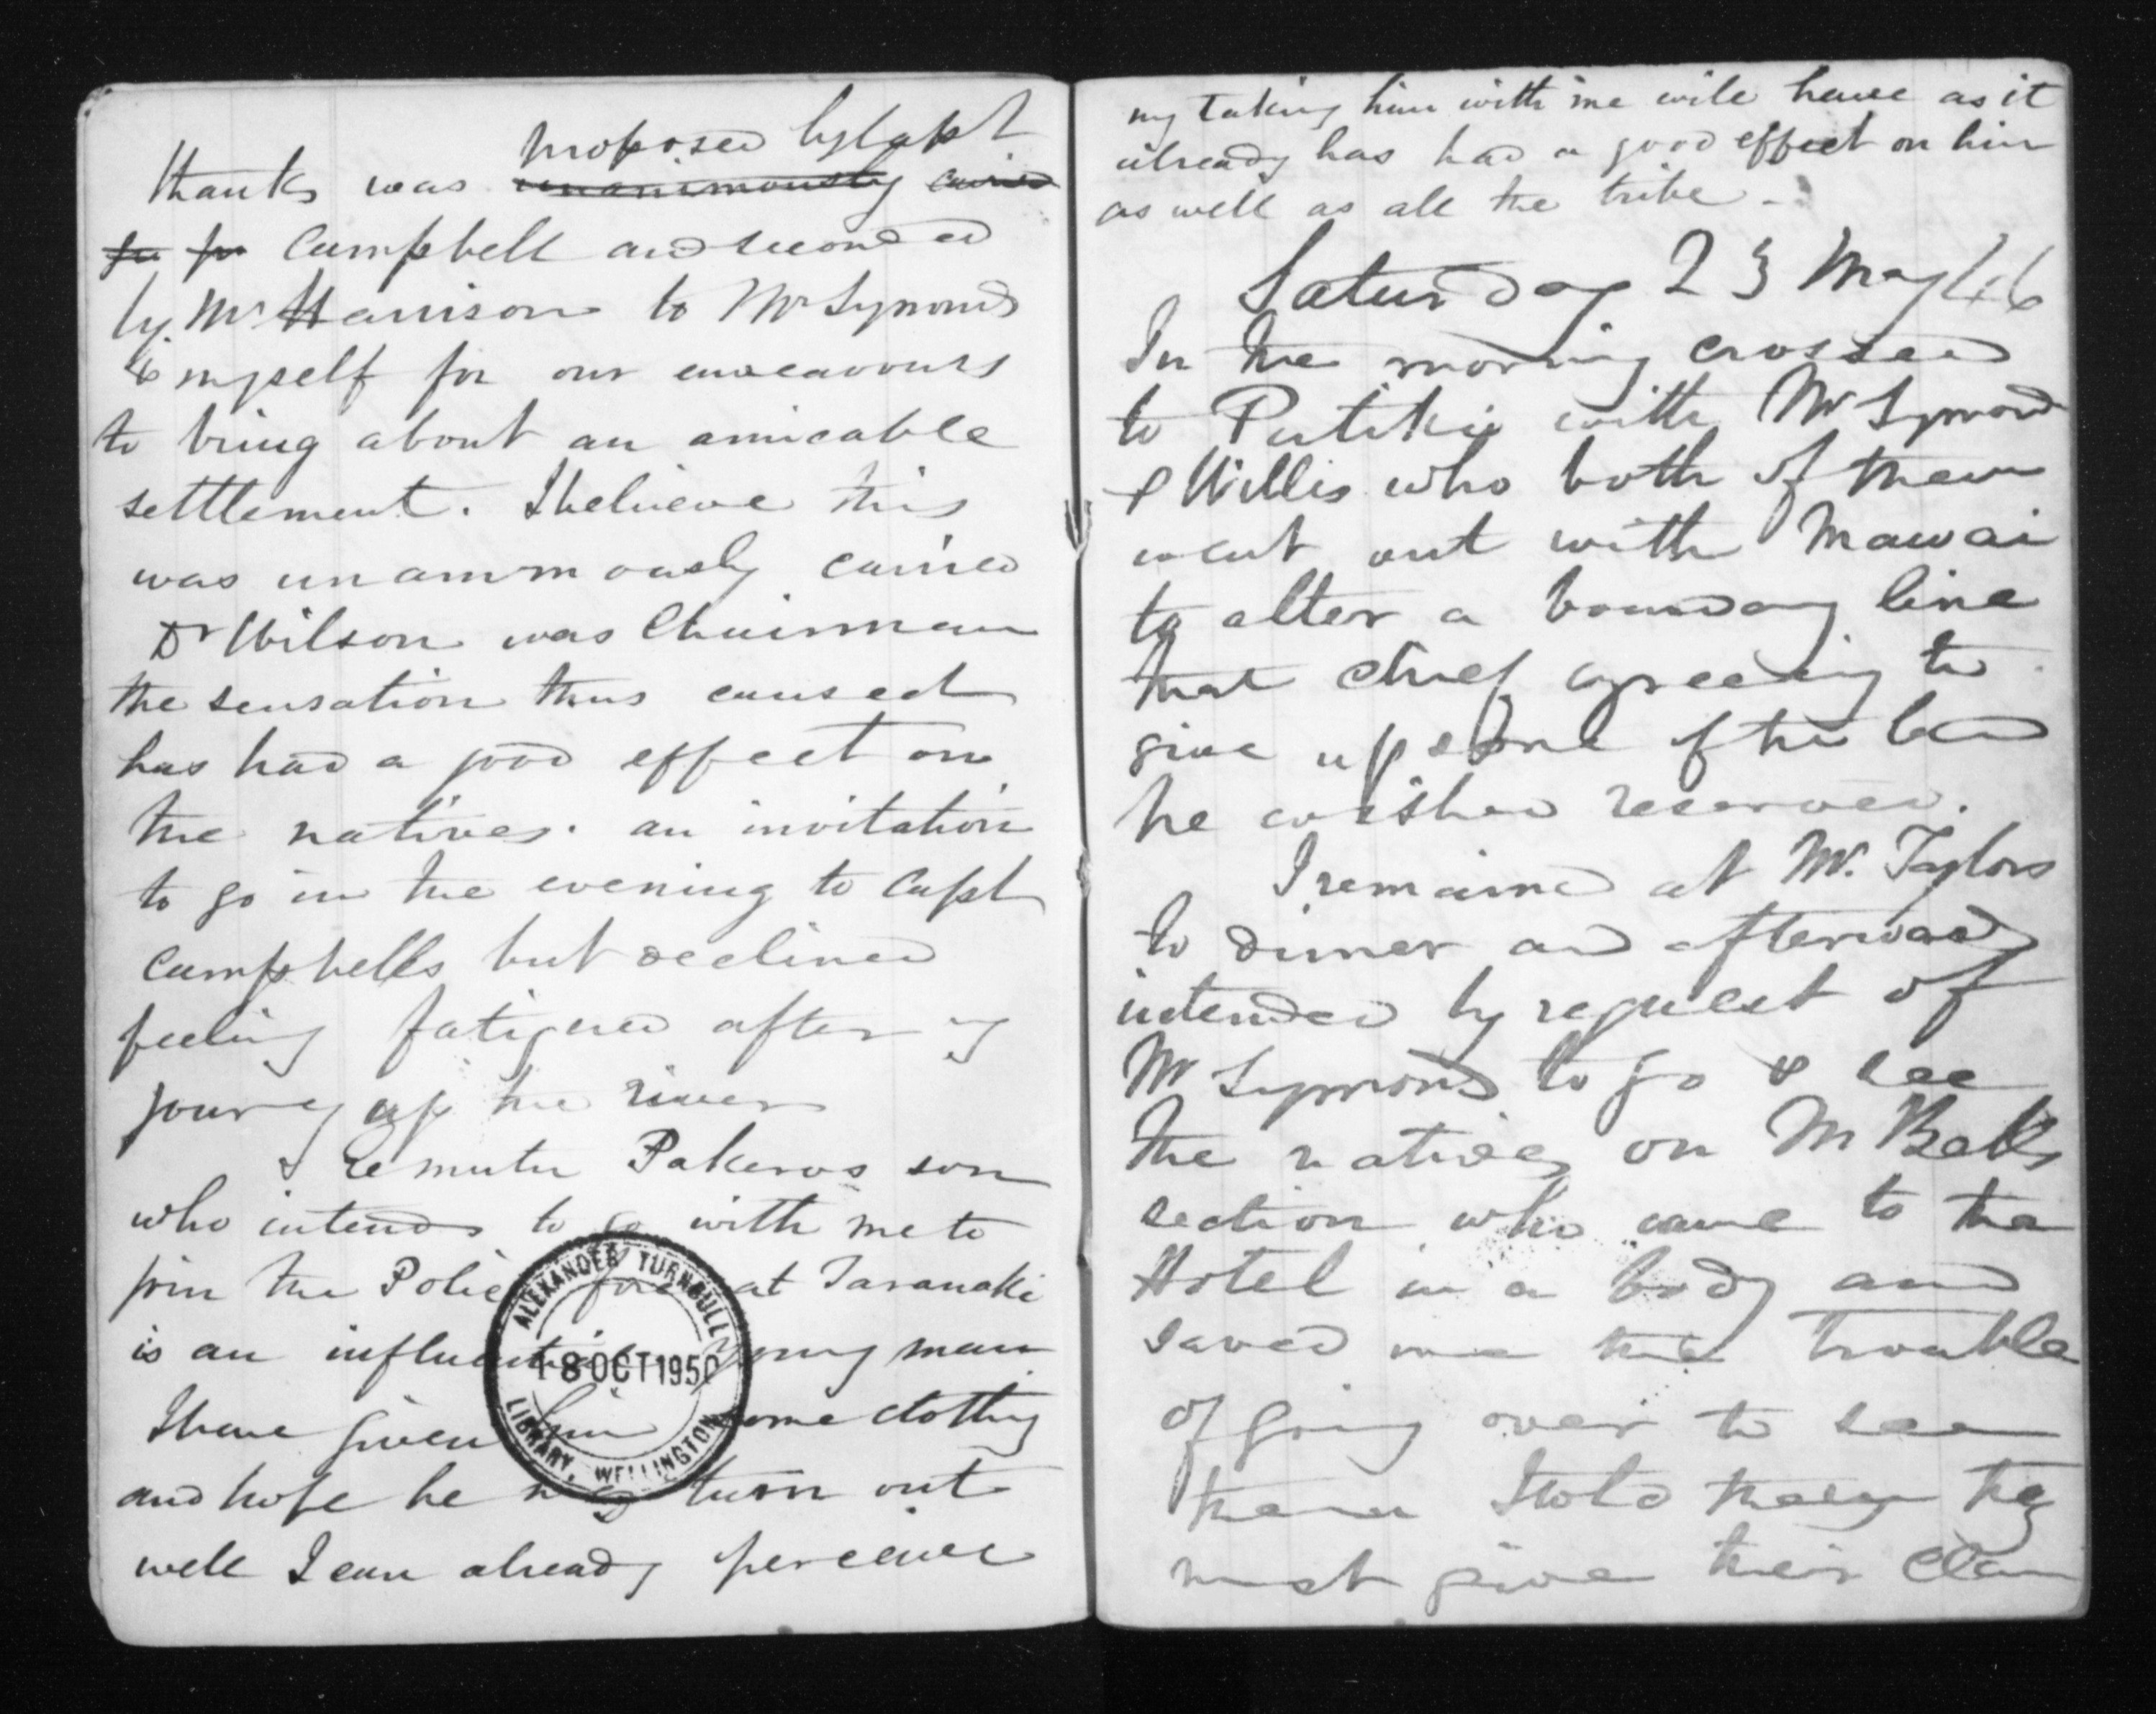 proposed by Capt
thanks was unanimously carried
to for Campbell and seconded
by Mr Harrison to Mr Symonds
& myself for our endeavours
to bring about an amicable
settlement. I believe this
was unanimously carried
Dr Wilson was Chairman
the sensation thus caused
has had a good effect on
the natives. an invitation
to go in the evening to Capt
Campbells but declined
feeling fatigued after my
journey up the river
Pakeros son
who intends to go with me to
join the Police force at Taranaki
is an influential young man
I have given him some clothing
and hope he may turn out
well I can already perceive
ALEXANDER TURNBULL
18 OCT 1950
LIBRARY, WELLINGTON
my taking him with me will have as it
already has had a good effect on him
as well as all the tribe -
Saturday 23 May /46
In the morning crossed
to Putikie with Mr Symond
& Willis who both of them
went out with Mawai
to alter a boundary line
that chief agreeing to
give up some of the land
he wished reserved.
I remained at Mr. Taylors
to dinner and afterwards
intended by request of
Mr Symonds to go & see
the natives on Mr Bells
section who came to the
Hotel in a body and
saved me the trouble
of going over to see
them I told them they
must give their claim